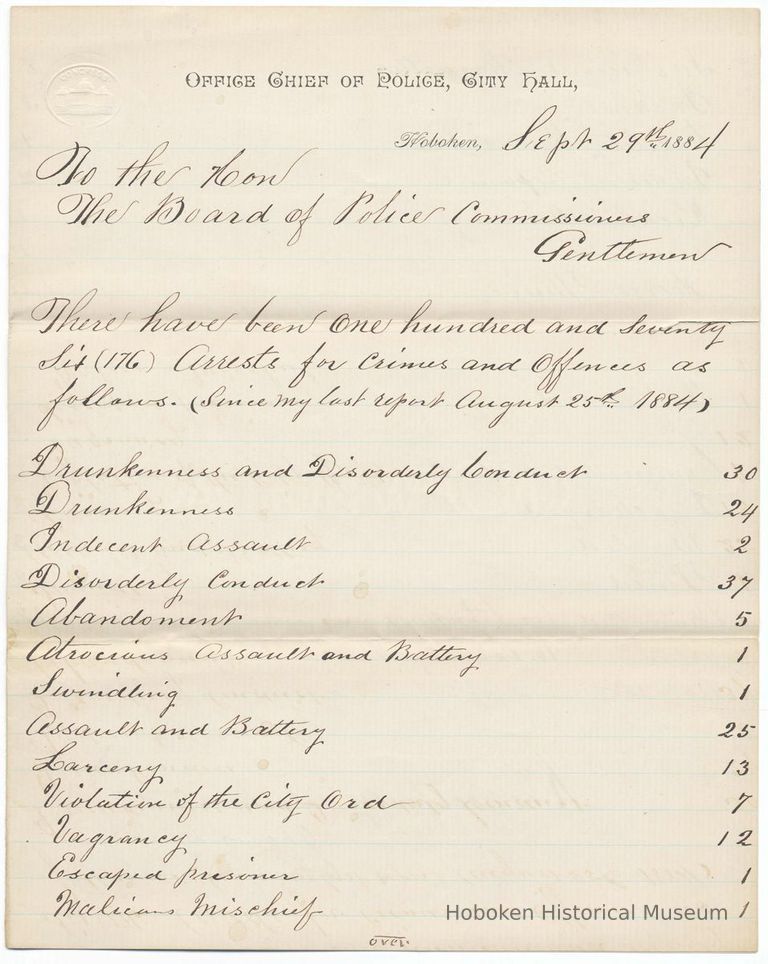 OFFICE CHIEF OF POLICE, CITY HALL,
Hoboken, Sept 29th 1884
To the Hon
The Board of Police Commissioners
Gentlemen
There have been One hundred and Seventy
Six (176) Arrests for Crimes and Offences as
follows. (Since my last report August 25th 1884)
Drunkenness and Disorderly Conduct 30
Drunkenness 24
Indecent Assault 2
Disorderly Conduct 37
Abandoment 5
Atrocious Assault and Battery 1
Swindling 1
Assault and Battery 25
Larceny 13
Violation of the City Ord 7
Vagrancy 12
Escaped prisoner 1
Malicous Mischief 1
Hoboken Historical Museum
over